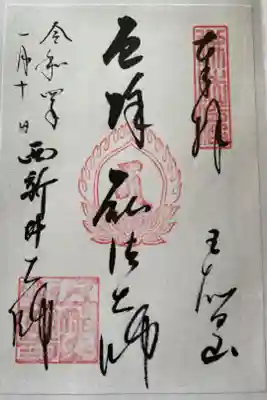 奉拝
五智山
厄除 弘法大師
令和四年
一月十日 西新井大師